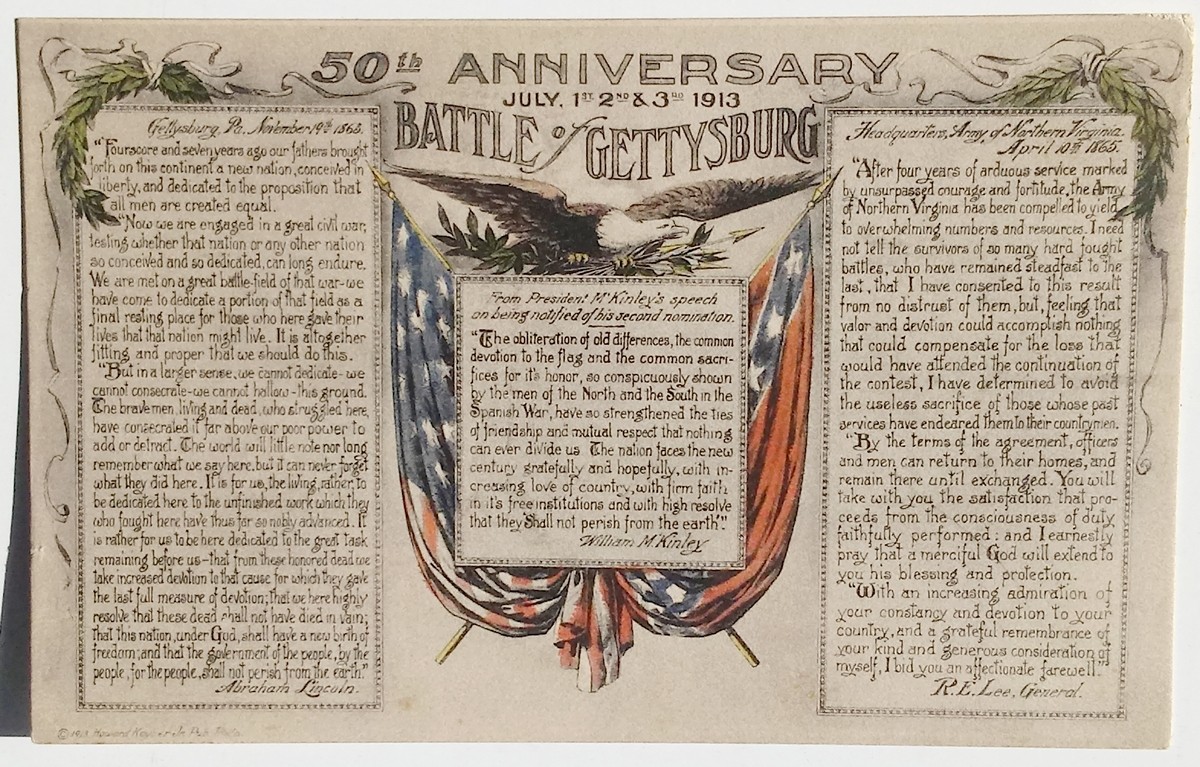 50th ANNIVERSARY
JULY, 1ST 2ND & 3RD 1913
BATTLE of GETTYSBURG
Gettysburg, Pa, November 19th 1863.
"Fourscore and seven years ago our fathers brought
forth on this continent a new nation, conceived in
liberty, and dedicated to the proposition that
all men are created equal.
"Now we are engaged in a great civil war,
testing whether that nation or any other nation
so conceived and so dedicated, can long endure.
We are met on a great battle-field of that war-we
have come to dedicate a portion of that field as a
final resting place for those who here gave their
lives that that nation might live. It is altogether
fitting, and proper that we should do this.
"But in a larger sense, we cannot dedicate-we
cannot consecrate-we cannot hallow-this ground.
The brave men, living and dead, who struggled here,
have consecrated it far above our poor power to
add or detract. The world will little note nor long
remember what we say here, but it can never forget
what they did here. It is for us, the living, rather, to
be dedicated here to the unfinished work which they
who fought here have thus far so nobly advanced. It
is rather for us to be here dedicated to the great task
remaining before us-that from these honored dead we
take increased devotion to that cause for which they gave
the last full measure of devotion; that we here highly
resolve that these dead shall not have died in vain;
that this nation, under God, shall have a new birth of
freedom; and that the government of the people, by the
people, for the people, shall not perish from the earth."
Abraham Lincoln.
From President McKinley's speech
on being notified of his second nomination.
"The obliteration of old differences, the common
devotion to the flag and the common sacri-
fices for it's honor, so conspicuously shown
by the men of the North and the South in the
Spanish War, have so strengthened the ties
of friendship and mutual respect that nothing
can ever divide us. The nation faces the new
century gratefully and hopefully, with in-
creasing love of country, with firm faith
in it's free institutions and with high resolve
that they "Shall not perish from the earth"."
William McKinley
Headquarters, Army, of Northern Virginia.
April 10th 1865.
"After four years of arduous service marked
by unsurpassed courage and fortitude, the Army
of Northern Virginia has been compelled to yield
to overwhelming numbers and resources. I need
not tell the survivors of so many hard fought
battles, who have remained steadfast to the
last, that I have consented to this result
from no distrust of them, but, feeling that
valor and devotion could accomplish nothing
that could compensate for the loss that
would have attended the continuation of
the contest, I have determined to avoid
the useless sacrifice of those whose past
services have endeared them to their countrymen.
"By the terms of the agreement, officers
and men can return to their homes, and
remain there until exchanged. You will
take with you the satisfaction that pro-
ceeds from the consciousness of duty
faithfully performed: and I earnestly
pray that a merciful God will extend to
you his blessing and protection.
"With an increasing admiration of
your constancy and devotion to your
country, and a grateful remembrance of
your kind and generous consideration of
myself, I bid you an affectionate farewell."
R.E. Lee, General.
© Howard